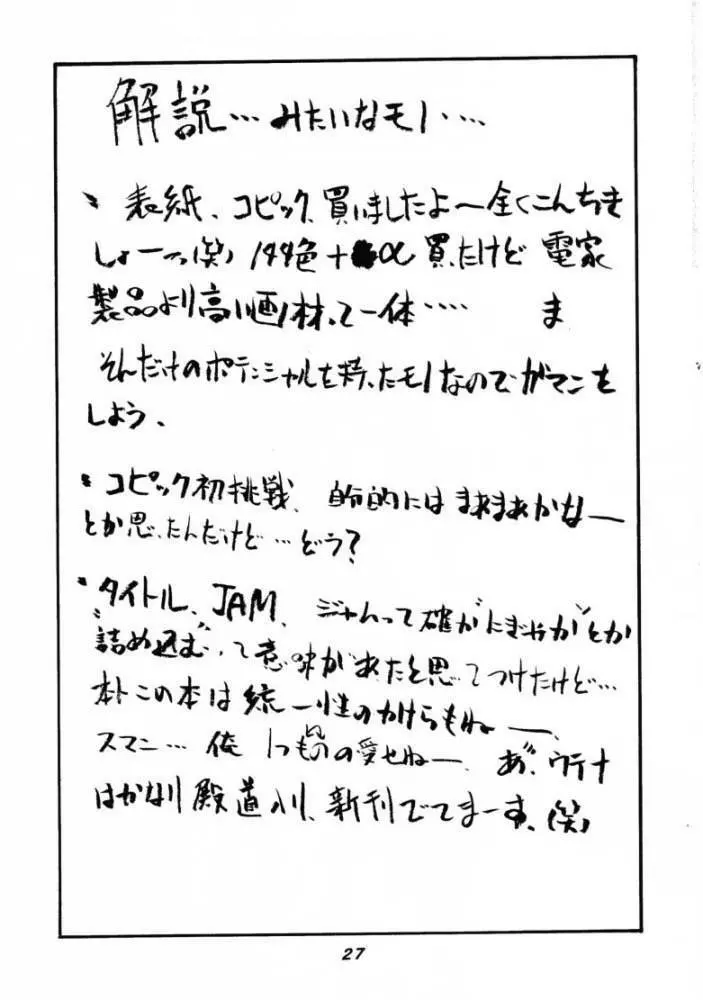 解説…みたいなモノ….
・表紙、コピック、買いましたよ〜全くこんちき
しょーっ(笑) 144色+α買ったけど 電家
製品より高い画材って一体…. ま
そんだけのポテンシャルを持ったモノなのでガマンを
しよう、
・コピック初挑戦、自分的にはまあまあかなー
とか思ったんだけど…どう?
・タイトル、JAM、ジャムって確か"にぎやか"とか
"詰め込む"って意味があったと思ってつけたけど…
本トこの本は統一性のかけらもねー、
スマン…俺 の愛せねー、あ、ウテナ
はかなり 入り、新刊でてまーす、(笑)
27